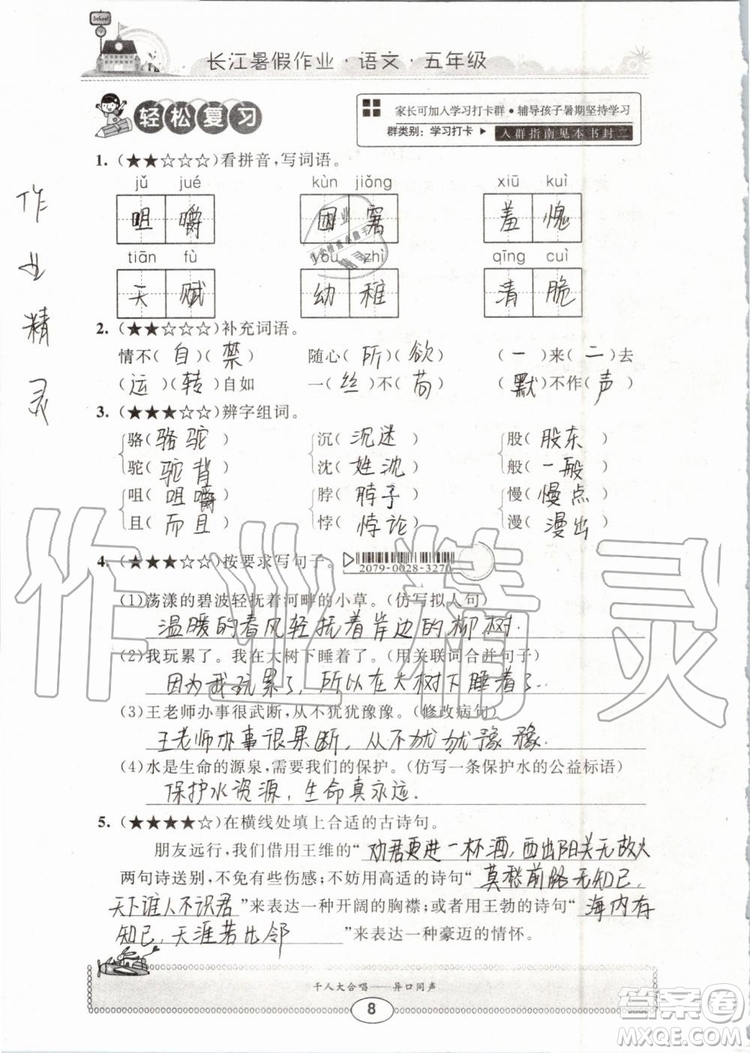 School
长江暑假作业·语文·五年级
轻松复习
家长可加入学习打卡群·辅导孩子暑期坚持学习
群类别：学习打卡 ▶ 入群指南见本书封二
作业精灵
1. (★★☆☆☆)看拼音，写词语。
jǔ jué kùn jiǒng xiū kuì
咀 嚼 困 窘 羞 愧
tiān fù yòu zhì qīng cuì
天 赋 幼 稚 清 脆
2. (★★☆☆☆)补充词语。
情不(自)(禁) 随心(所)(欲) (一)来(二)去
(运)(转)自如 一(丝)不(苟) (默)不作(声)
3. (★★★☆☆)辨字组词。
骆(骆驼) 沉(沉迷) 股(股东)
驼(驼背) 沈(姓沈) 般(一般)
咀(咀嚼) 脖(脖子) 慢(慢点)
且(而且) 悖(悖论) 漫(漫出)
4. (★★★☆☆)按要求写句子。
2079-0028-3270
(1)荡漾的碧波轻抚着河畔的小草。(仿写拟人句)
温暖的春风轻抚着岸边的柳树.
(2)我玩累了。我在大树下睡着了。(用关联词合并句子)
因为我玩累了，所以在大树下睡着了.
(3)王老师办事很武断，从不犹犹豫豫。(修改病句)
王老师办事很果断，从不犹犹豫豫.
(4)水是生命的源泉，需要我们的保护。(仿写一条保护水的公益标语)
保护水资源，生命真永远.
5. (★★★★☆)在横线处填上合适的古诗句。
朋友远行，我们借用王维的“劝君更进一杯酒，西出阳关无故人”
两句诗送别，不免有些伤感；不妨用高适的诗句“莫愁前路无知己，
天下谁人不识君”来表达一种开阔的胸襟；或者用王勃的诗句“海内存
知己，天涯若比邻”来表达一种豪迈的情怀。
千人大合唱——异口同声
8
作业精灵
答案圈
MXQE.COM